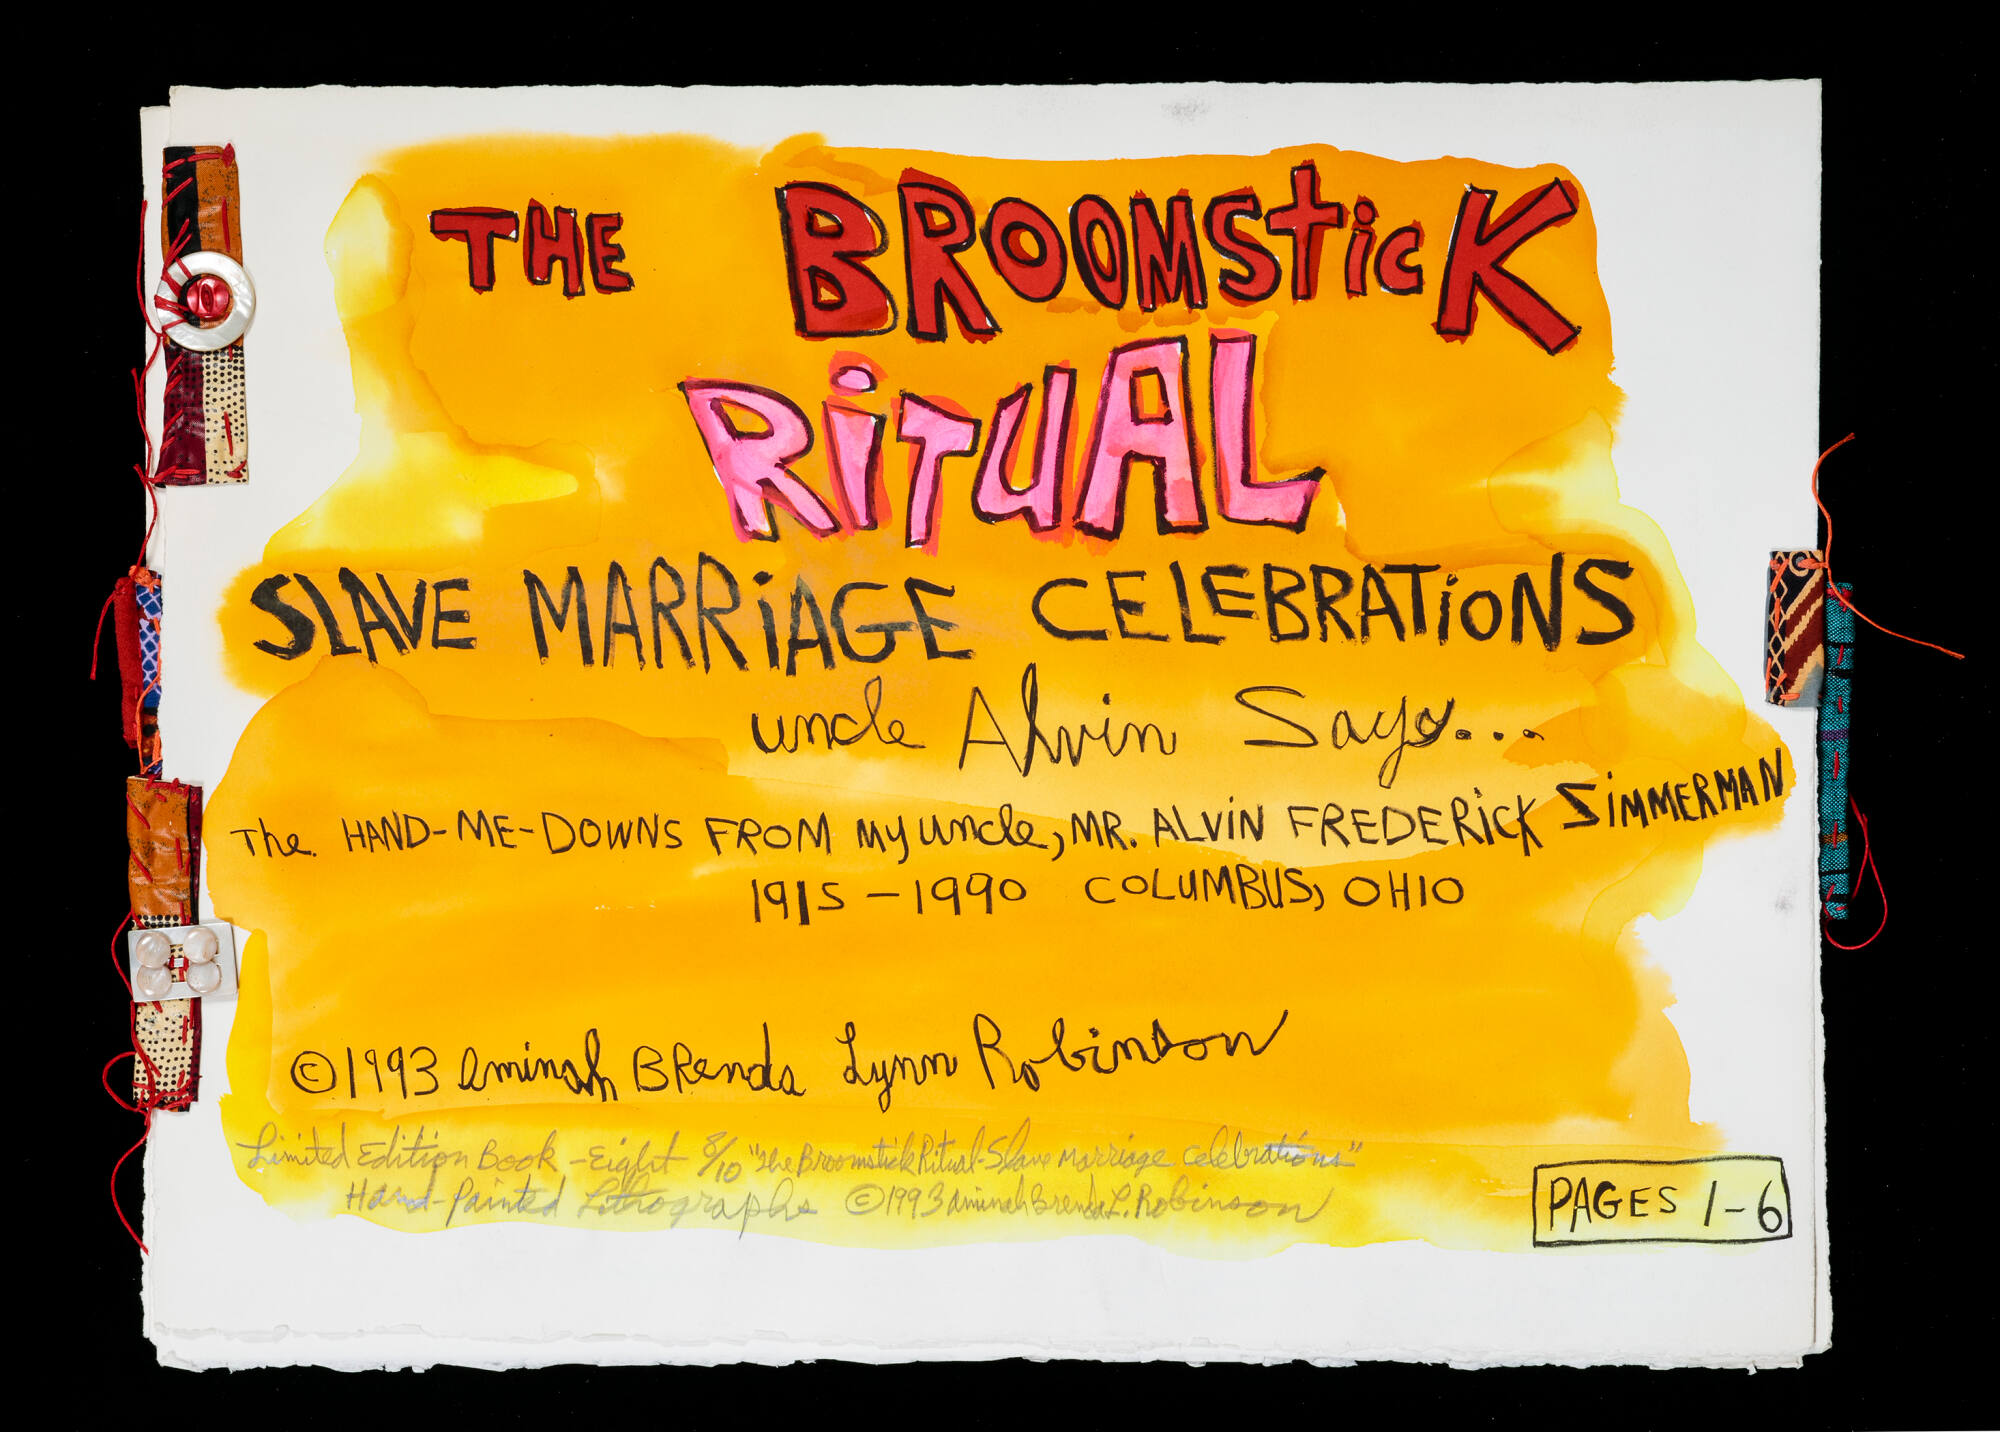 THE BROOMSTICK
RITUAL
SLAVE MARRIAGE CELEBRATIONS
uncle Alvin Says...
The HAND-ME-DOWNS FROM MY uncle, MR. ALVIN FREDERICK SIMMERMAN
1915 - 1990 COLUMBUS, OHIO
©1993 Aminah BRenda Lynn Robinson
Limited Edition Book - Eight 8/10 "The Broomstick Ritual-Slave Marriage Celebrations"
Hand-Painted Lithographs ©1993 Aminah Brenda L. Robinson
PAGES 1-6